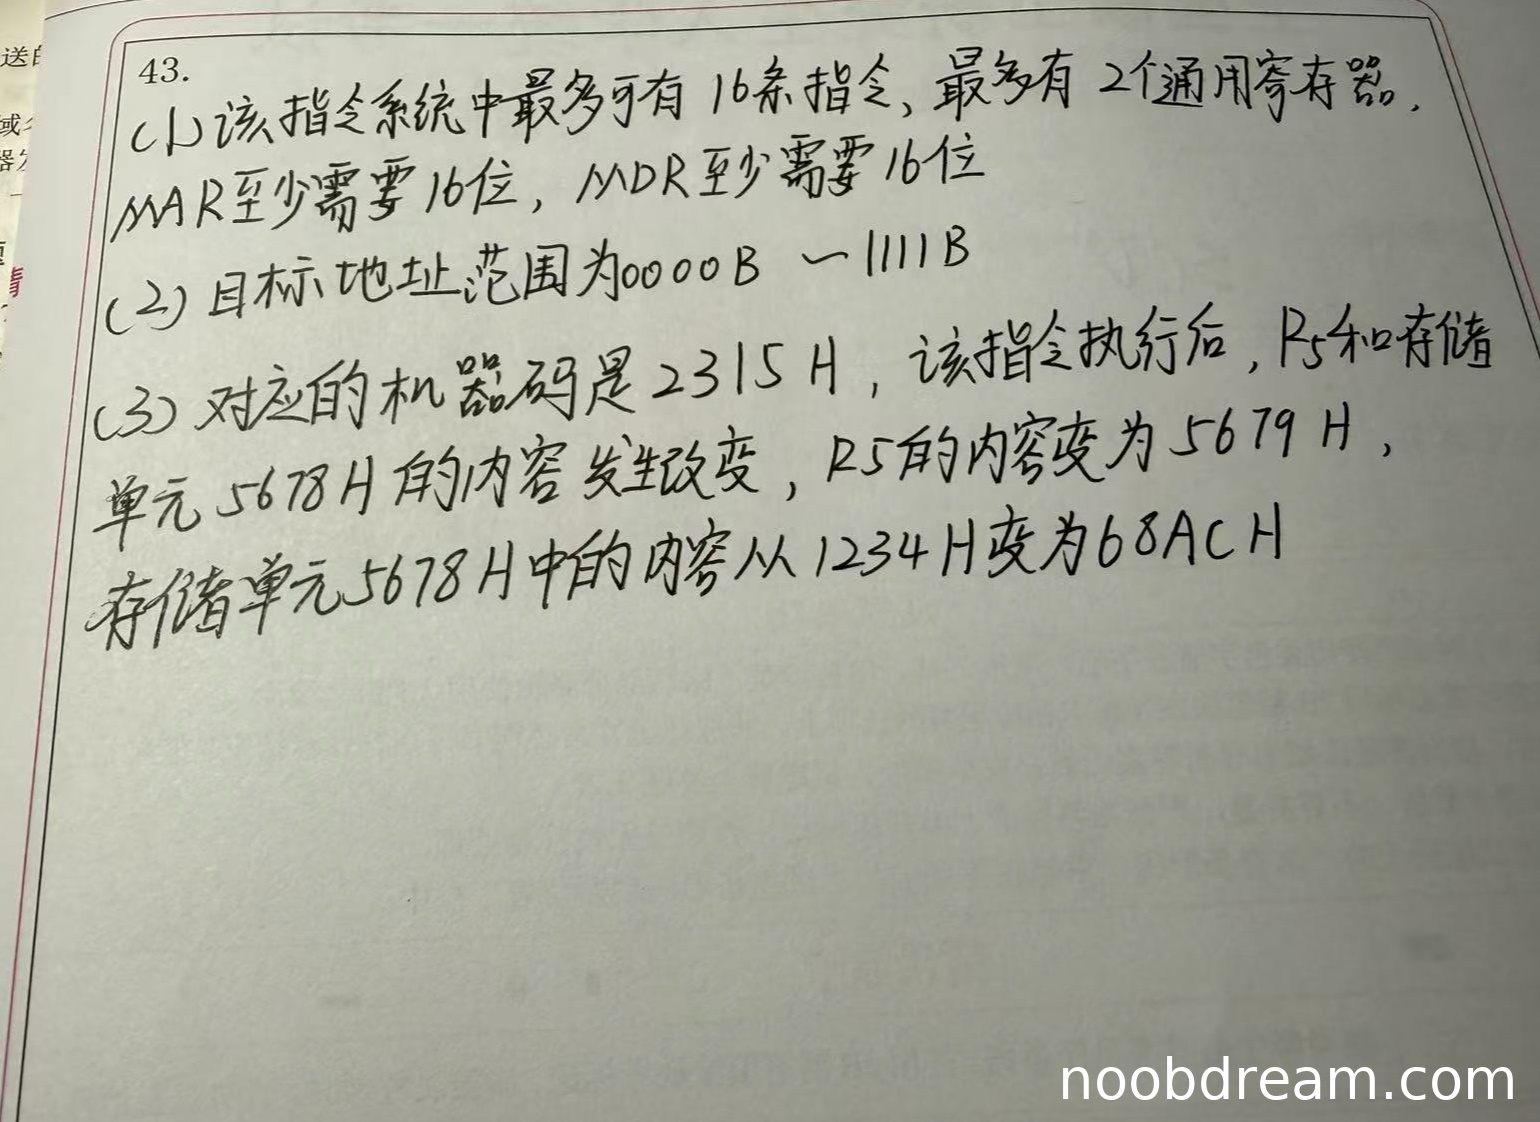 送
域名
43.
(1)该指令系统中最多可有16条指令、最多有2个通用寄存器.
MAR至少需要16位，MDR至少需要16位
(2)目标地址范围为0000B～1111B
(3)对应的机器码是2315H，该指令执行后，R5和存储
单元5678H的内容发生改变，R5的内容变为5679H，
存储单元5678H中的内容从1234H变为68ACH
noobdream.com